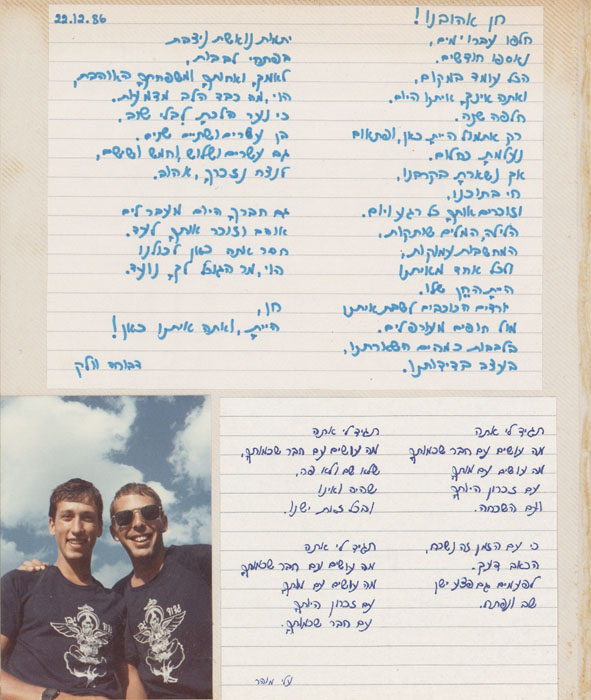 22.12.86
חן אהובנו!
חלפו עברו ימים,
נאספו חודשים.
הכל עומד במקום,
ואתה אינך, איתנו היום.
חלפה שנה.
רק אתמול היית כאן, ופתאום
נעלמת כחלום.
אך נשארת בקרבנו,
חי בתוכנו,
וזוכרים אותך כל רגע ויום.
הלילה, המלים שותקות,
המחשבות עמוקות;
ולכל אחד מאיתנו
היית החן שלו.
יורדים הכוכבים לשבת איתנו
מול חופים מעורפלים.
בלבבות כמהים השארתנו,
בעצב בדידותנו.
נואשת ניצבת
בפתחי לבבות,
לאמך, ואחותך ומשפחתך האוהבת,
הוי, מה כבד הלב מדמעות.
כי נער הלכת לבלי שוב,
בן עשרים ושתיים שנים.
גם עשרים ושלוש, וחמש וששים,
לנצח נזכרך, אהוב.
גם חברך היום מעבר לים
אוהב וזוכר אותך לעד.
חסר אתה כאן לכולנו
הוי, מר הגורל לך, נועד.
חן,
היית, ואתה איתנו כאן!
דבורה וולק
תגיד לי אתה
מה עושים עם חבר שכמותך
מה עושים עם מותך
עם זכרון היותך
ועם השכחה.
כי עם הזמן זה נשכח,
הכאב דעך.
לפעמים גם פצע ישן
שב ונפתח.
תגיד לי אתה
מה עושים עם חבר שכמותך,
שלא שם ולא פה,
שהיה ואינו
ובכל זאת ישנו.
תגיד לי אתה
מה עושים עם חבר שכמותך
מה עושים עם מותך
עם זכרון היותך
עם חבר שכמותך.
עלי מוהר